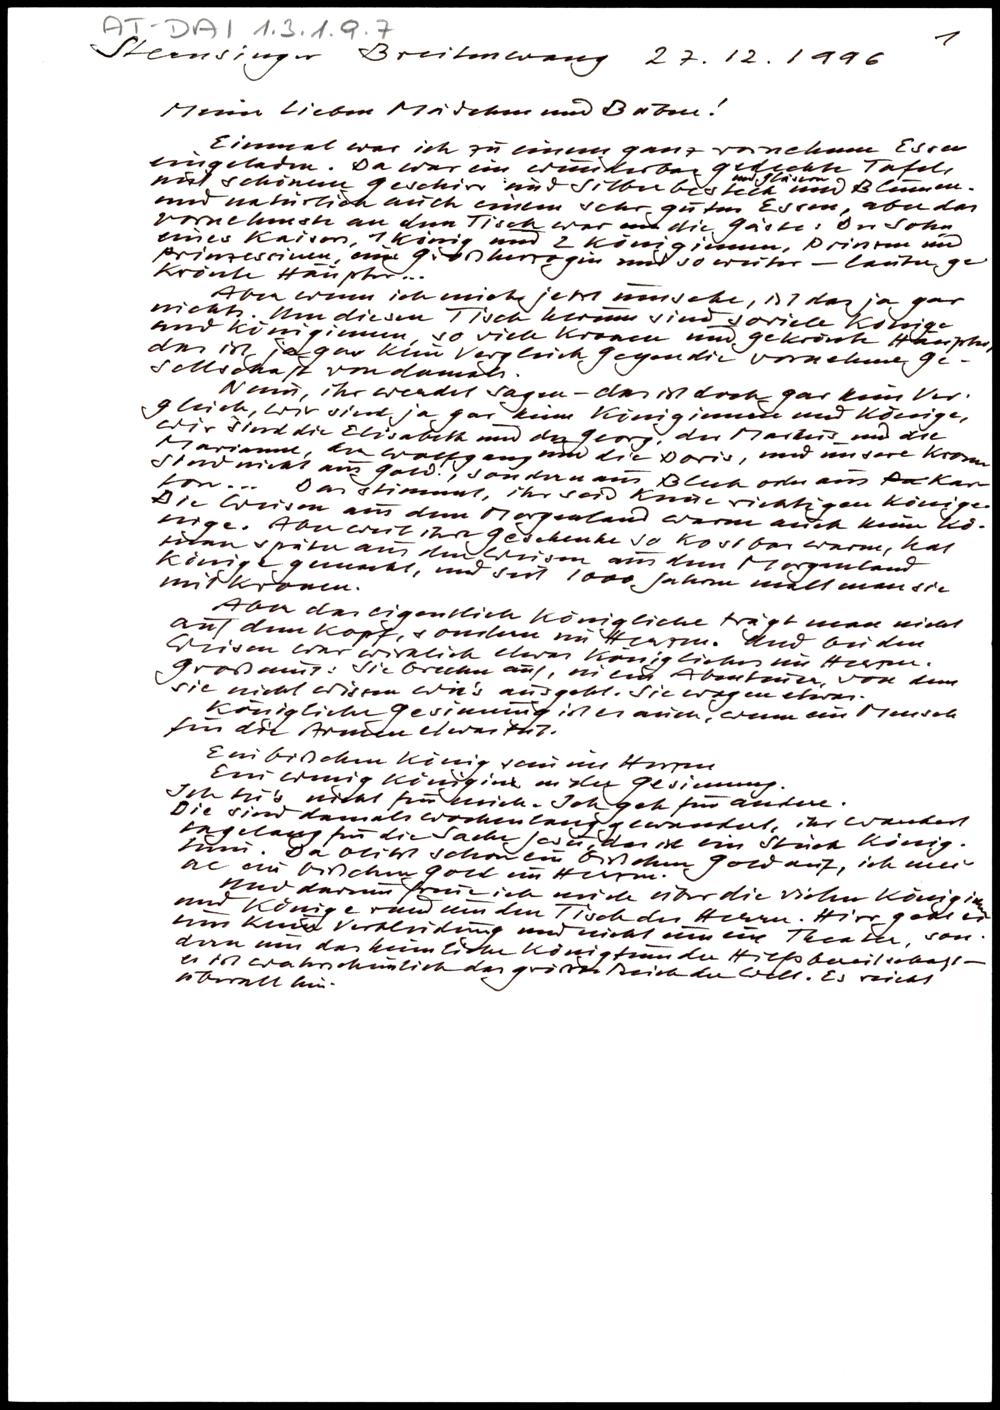 AT-DAI 1.3.1.9.7
1
Sternsinger Breitenwang 27.12.1996
Meine lieben Mädchen und Buben!
Einmal war ich zu einem ganz vornehmen Essen
eingeladen. Da war ein wunderbar gedeckte Tafel,
mit schönem Geschirr und Silberbesteck und Gläsern und Blumen.
und natürlich auch einem sehr guten Essen, aber das
vornehmste an dem Tisch war die Gäste: Der Sohn
eines Kaisers, 1 König und 2 Königinnen, Prinzen und
Prinzessinen, eine Großherzogin und so weiter – lauter ge
krönte Häupter...
Aber wenn ich mich jetzt umsehe, ist das ja gar
nichts. Um diesen Tisch herum sind soviele Könige
und Königinnen, so viele Kronen und gekrönte Häupter,
das ist ja gar kein Vergleich gegen die vornehme Ge-
sellschaft von damals.
Nein, ihr werdet sagen – das ist doch gar kein Ver-
gleich, wir sind ja gar keine Königinnen und Könige,
wir sind die Elisabeth und der Georg, der Markus und die
Marianne, der Wolfgang und die Doris, und unsere Kronen
sind nicht aus Gold, sondern aus Blech oder aus Kar
ton... Das stimmt, ihr seid keine richtigen Könige.
Die Weisen aus dem Morgenland waren auch keine Kö-
nige. Aber weil ihre Geschenke so kostbar waren, hat
man später aus den Weisen aus dem Morgenland
Könige gemacht, und seit 1000 Jahren malt man sie
mit Kronen.
Aber das eigentlich Königliche trägt man nicht
auf dem Kopf, sondern im Herzen. Und bei den
Weisen war wirklich etwas Königliches im Herzen.
Großmut: Sie brechen auf, in ein Abenteuer, von dem
sie nicht wissen wie's ausgeht. Sie wagen etwas.
Königliche Gesinnung ist es auch, wenn ein Mensch
für die Armen etwas tut.
Ein bißchen König sein im Herzen
Ein wenig Königin in der Gesinnung.
Ich tu's nicht für mich. Ich geh für andere.
Die sind damals wochenlang gewandert, ihr wandert
tagelang für die Sache Jesu, das ist ein Stück König-
tum. Da blitzt schon ein bißchen Gold auf, ich mei-
ne ein bißchen Gold im Herzen.
Und darum freue ich mich über die vielen Königinnen
und Könige rund um den Tisch des Herrn. Hier geht es
um keine Verkleidung und nicht um ein Theater, son-
dern um das heimliche Königtum der Hilfsbereitschaft –
es ist wahrscheinlich das größte Reich der Welt. Es reicht
überall hin.